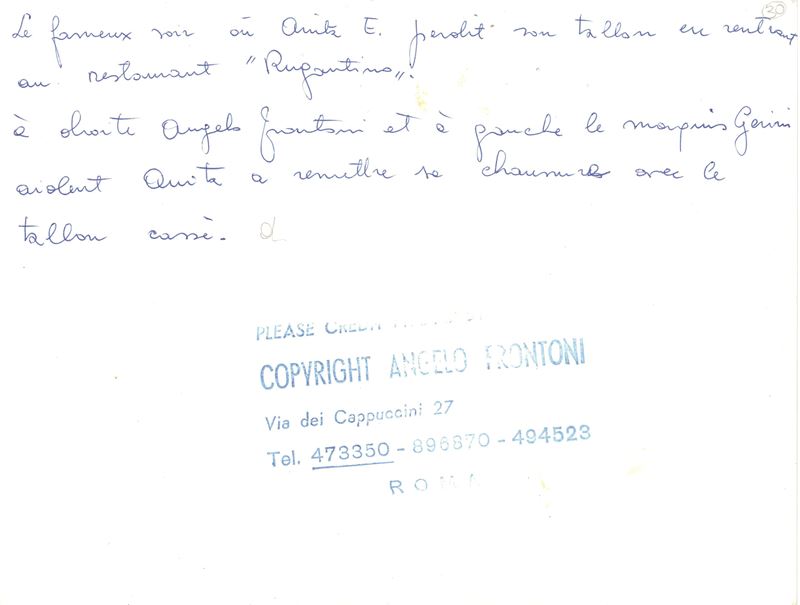 20
Le fameux soir où Anita E. perdit son tallon en rentrant
au restaurant "Rugantino".
à droite Angelo Frontoni et à gauche le marquis Gerini
aident Anita a remettre sa chaussure avec le
tallon cassè.
PLEASE CREDIT
COPYRIGHT ANGELO FRONTONI
Via dei Cappuccini 27
Tel. 473350 - 896870 - 494523
ROMA